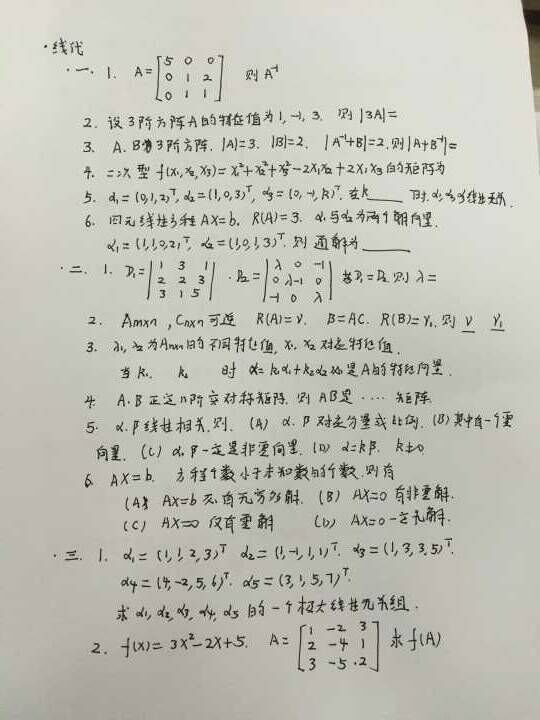 ·线代
·一· 1. A=[5 0 0; 0 1 2; 0 1 1] 则 A⁻¹
2. 设3阶方阵A的特征值为1, -1, 3. 则 |3A|=
3. A.B为3阶方阵. |A|=3. |B|=2. |A⁻¹+B|=2.则|A+B⁻¹|=
4. 二次型 f(x₁,x₂,x₃)=x₁²+x₂²+x₃²-2x₁x₂+2x₁x₃的矩阵为
5. α₁=(0,1,2)ᵀ, α₂=(1,0,3)ᵀ, α₃=(0,-1,k)ᵀ. 在k___时.α₁α₂α₃线性无关.
6. 四元线性方程 AX=b. R(A)=3. α₁与α₂为两个解向量.
α₁=(1,1,0,2)ᵀ, α₂=(1,0,1,3)ᵀ. 则 通解为____
·二. 1. D₁=|1 3 1; 2 2 3; 3 1 5| . D₂=|λ 0 -1; 0 λ-1 0; -1 0 λ| 若D₁=D₂ 则 λ=
2. Amxn , Cnxn 可逆 R(A)=r. B=AC. R(B)=r₁. 则 r r₁
3. λ₁, λ₂为Anxn的不同特征值, x₁, x₂ 对应特征值.
当 k₁ k₂ 时 α=k₁α₁+k₂α₂ 必是A的特征向量.
4. A.B正定n阶实对称矩阵. 则 AB是 ···· 矩阵
5. α.β线性相关.则. (A) α.β对应分量成比例. (B)其中有一个零
向量. (C) α.β一定是非零向量. (D) α=kβ. k≠0
6. AX=b. 方程个数小于未知数的个数.则有
(A) AX=b 无穷多解. (B) AX=0 有非零解.
(C) AX=0 仅有零解 (D) AX=0 一定无解.
·三. 1. α₁=(1,1,2,3)ᵀ α₂=(1,-1,1,1)ᵀ. α₃=(1,3,3,5)ᵀ.
α₄=(4,-2,5,6)ᵀ. α₅=(3,1,5,7)ᵀ.
求 α₁, α₂, α₃, α₄, α₅ 的一个极大线性无关组.
2. f(x)=3x²-2x+5. A=[1 -2 3; 2 -4 1; 3 -5 2] 求f(A)